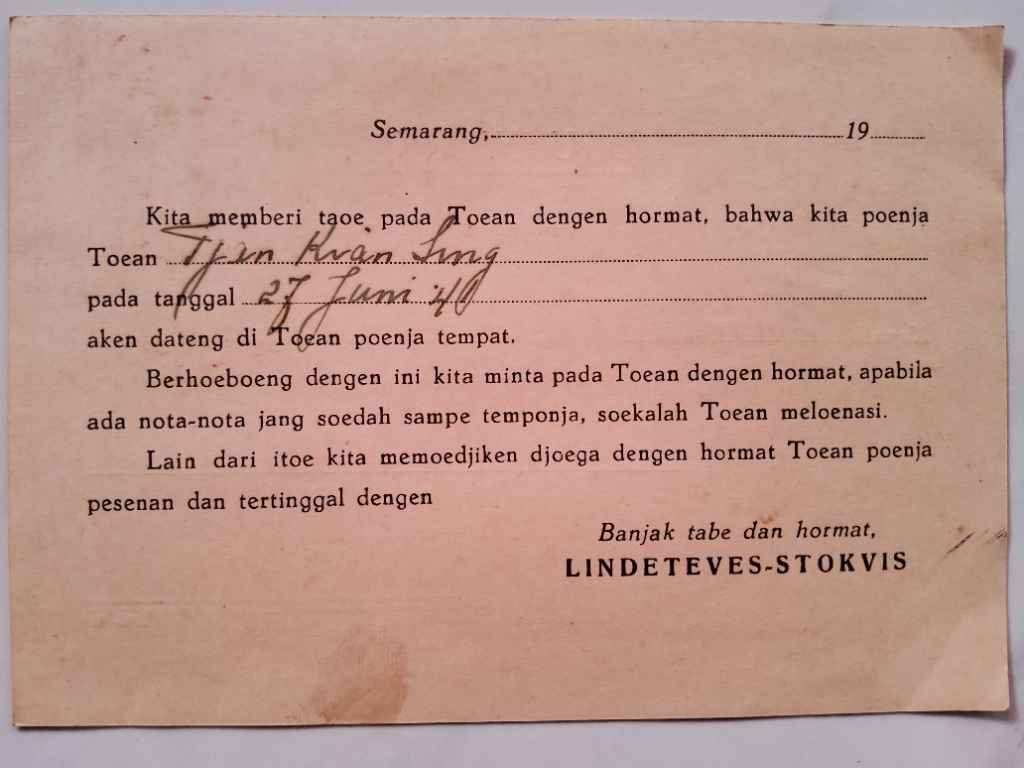 Semarang,..............................19..........
Kita memberi taoe pada Toean dengen hormat, bahwa kita poenja
Toean Tjan Kwan Sing
pada tanggal 27 Juni '40
aken dateng di Toean poenja tempat.
Berhoeboeng dengen ini kita minta pada Toean dengen hormat, apabila
ada nota-nota jang soedah sampe temponja, soekalah Toean meloenasi.
Lain dari itoe kita memoedjiken djoega dengen hormat Toean poenja
pesenan dan tertinggal dengen
Banjak tabe dan hormat,
LINDETEVES-STOKVIS